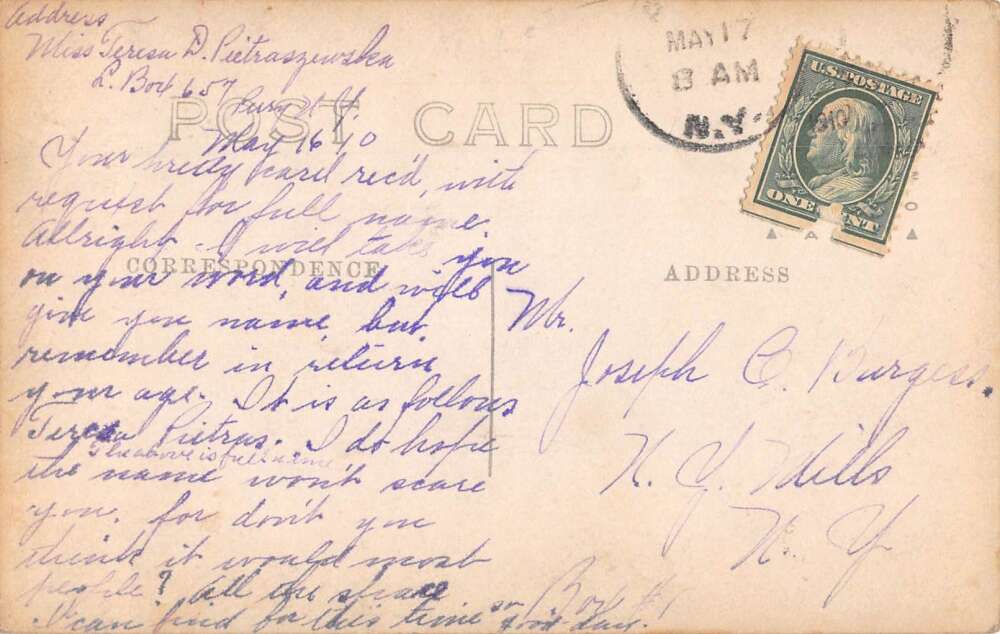 Address
Miss Teresa D. Pietraszewska
L. Box 657
May 16 10
POST CARD
Your pretty card rec'd, with
request for full name.
Allright - I will take you
on your word, and will
give you name but
remember in return
your age. It is as follows
Teresa Pietras. I do hope
The above is full name
the name won't scare
you, for don't you
think it would most
people? All the space
I can find for this time so good-bye.
CORRESPONDENCE
MAY 17
8 AM
N.Y.
1910
U.S. POSTAGE
ONE CENT
ADDRESS
Mr.
Joseph C. Burgess.
N. Y. Mills
N. Y.
Box #1